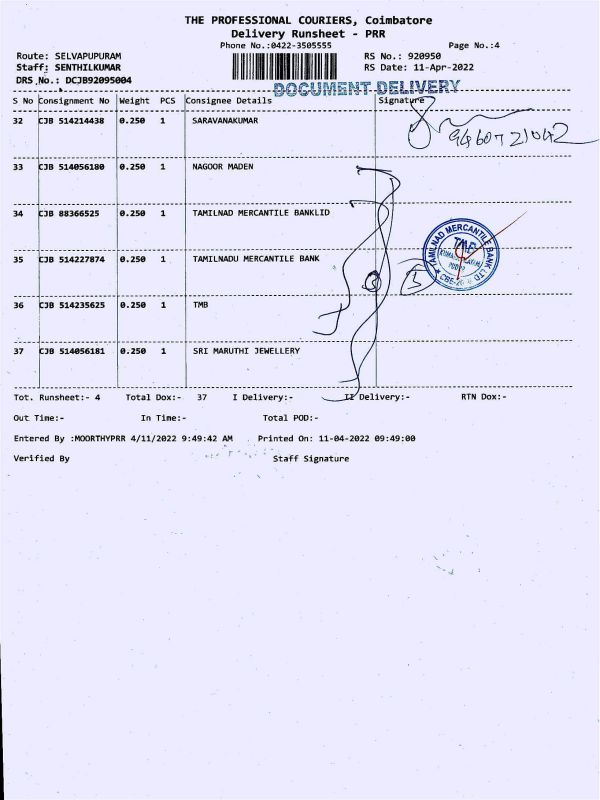 THE PROFESSIONAL COURIERS, Coimbatore
Delivery Runsheet - PRR
Phone No.:0422-3505555 Page No.:4
Route: SELVAPUPURAM RS No.: 920950
Staff: SENTHILKUMAR RS Date: 11-Apr-2022
DRS No.: DCJB92095004
DOCUMENT DELIVERY
S No Consignment No Weight PCS Consignee Details Signature
32 CJB 514214438 0.250 1 SARAVANAKUMAR
33 CJB 514056180 0.250 1 NAGOOR MADEN
34 CJB 88366525 0.250 1 TAMILNAD MERCANTILE BANKLID
TAMILNAD MERCANTILE BANK LTD
TMB
35 CJB 514227874 0.250 1 TAMILNADU MERCANTILE BANK
36 CJB 514235625 0.250 1 TMB
37 CJB 514056181 0.250 1 SRI MARUTHI JEWELLERY
Tot. Runsheet:- 4 Total Dox:- 37 I Delivery:- II Delivery:- RTN Dox:-
Out Time:- In Time:- Total POD:-
Entered By :MOORTHYPRR 4/11/2022 9:49:42 AM Printed On: 11-04-2022 09:49:00
Verified By Staff Signature